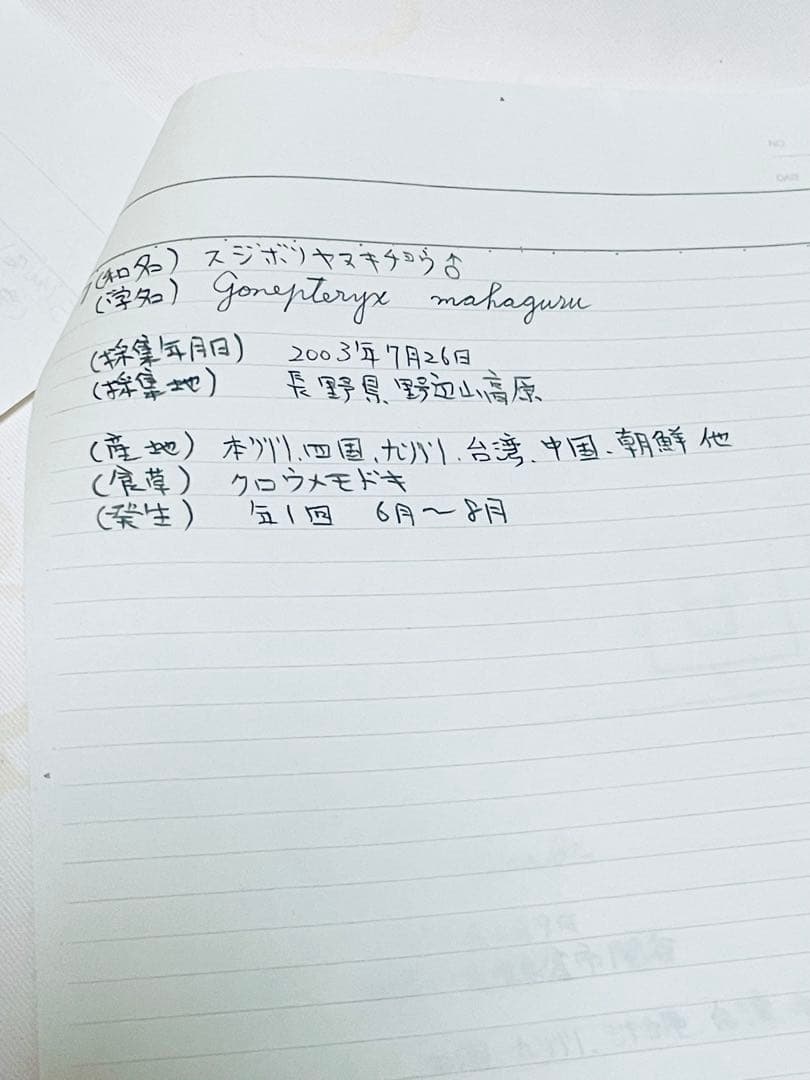 (和名) スジボソヤマキチョウ♂
(学名) Gonepteryx mahaguru
(採集年月日) 2003年7月26日
(採集地) 長野県、野辺山高原
(産地) 本州、四国、九州、台湾、中国、朝鮮 他
(食草) クロウメモドキ
(発生) 年1回 6月〜8月